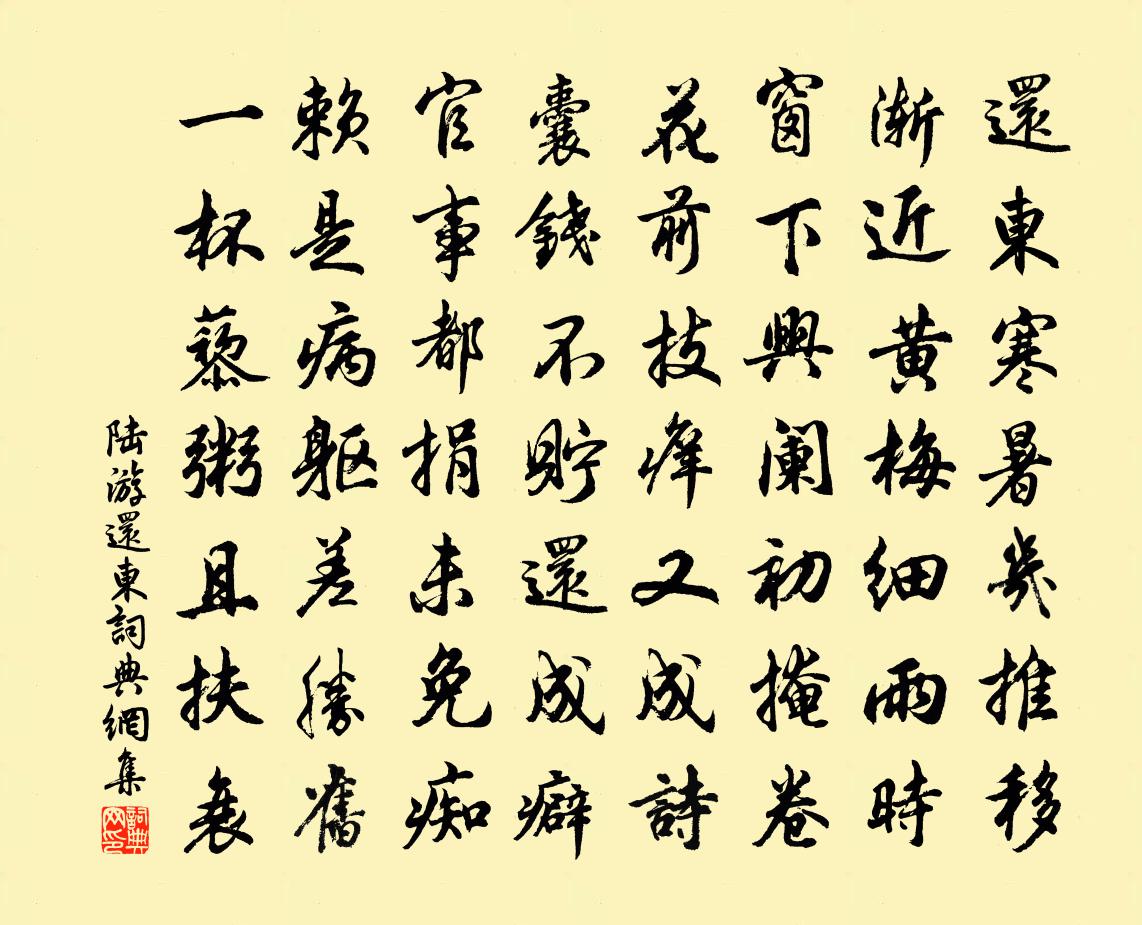 還東寒暑幾推移
漸近黃梅細雨時
窗下興闌初掩卷
花前技癢又成詩
囊錢不貯還成癖
官事都捐未免痴
賴是病軀差勝舊
一杯藜粥且扶衰
陸游還東詞典網集
詞典网印